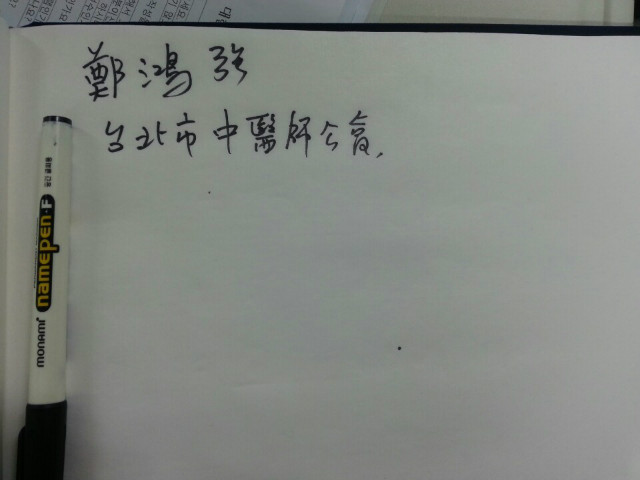 鄭鴻強
台北市中醫師公會.
monami namepen·F